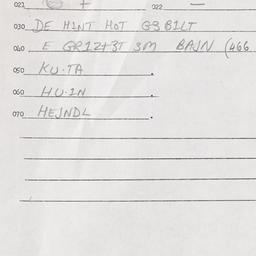 021 + 022 —
030 DE HINT HOT G3BILT
040 E GR1Z+3T 3M BAJN (466
050 KU·TA .
060 HU·IN .
070 HEJNDL .